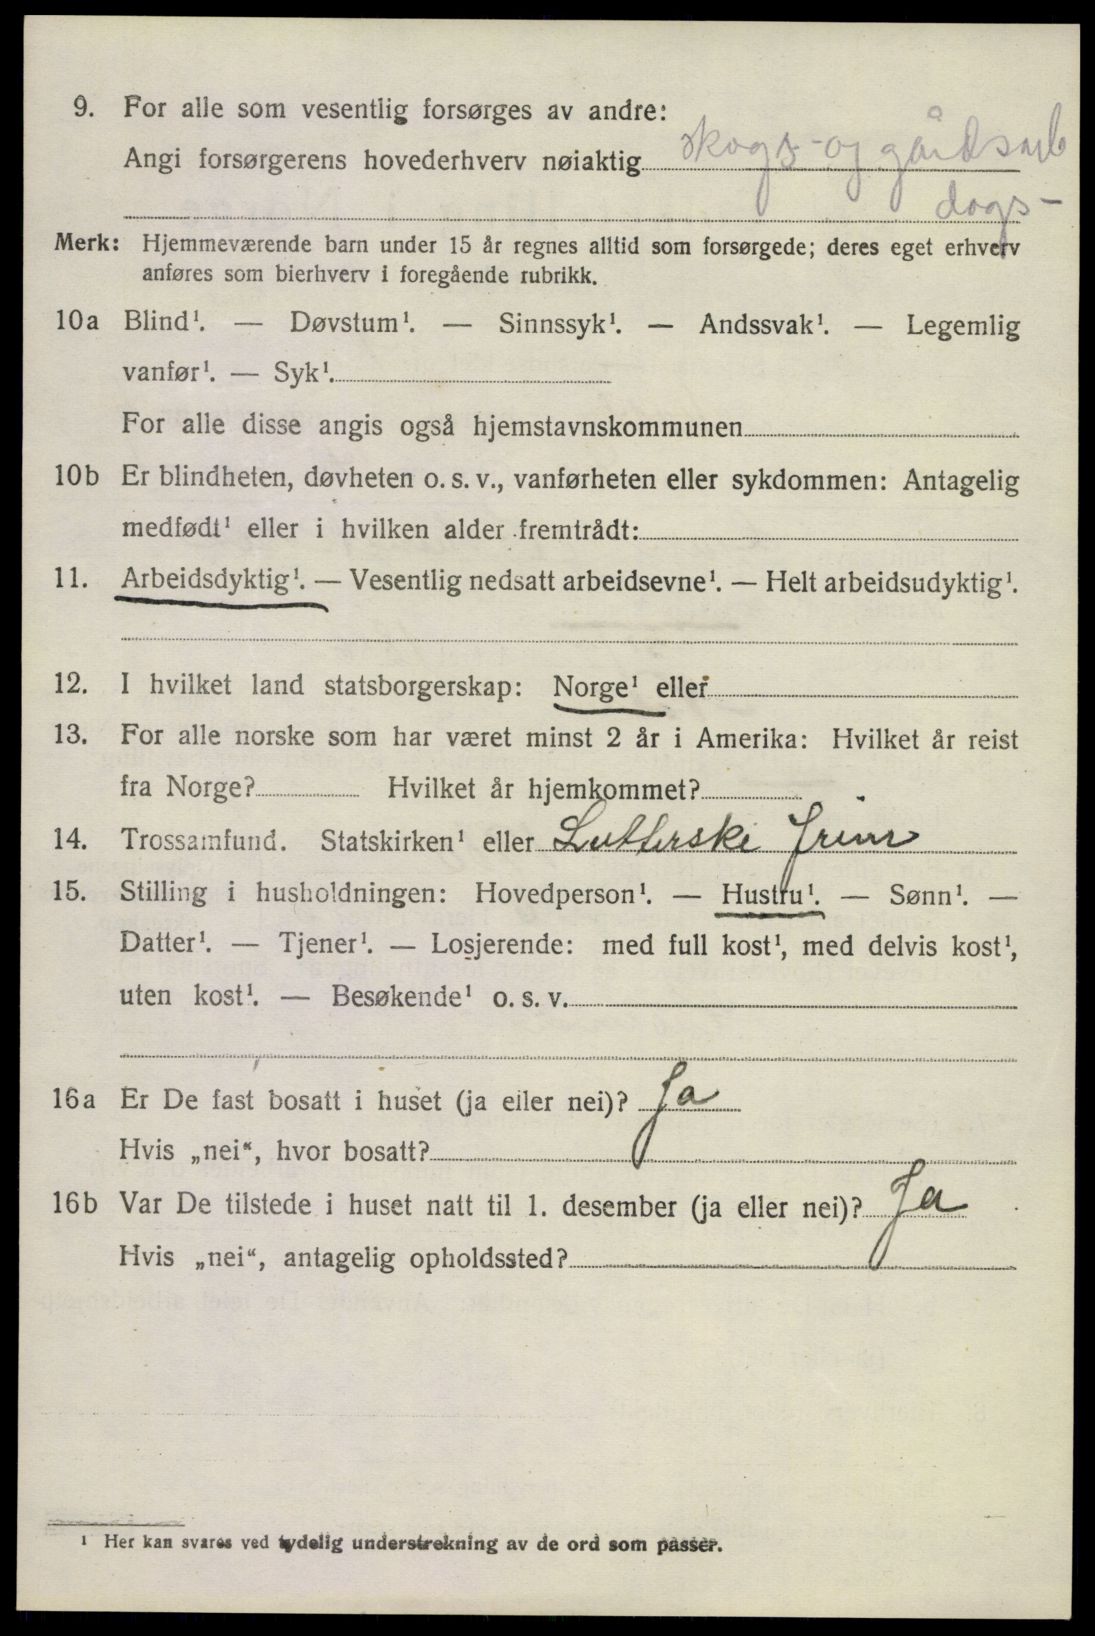 9. For alle som vesentlig forsørges av andre:
Angi forsørgerens hovederhverv nøiaktig skogs- og gårdsarb
dags-
Merk: Hjemmeværende barn under 15 år regnes alltid som forsørgede; deres eget erhverv
anføres som bierhverv i foregående rubrikk.
10a Blind¹. — Døvstum¹. — Sinnssyk¹. — Andssvak¹. — Legemlig
vanfør¹. — Syk¹.
For alle disse angis også hjemstavnskommunen
10b Er blindheten, døvheten o. s. v., vanførheten eller sykdommen: Antagelig
medfødt¹ eller i hvilken alder fremtrådt:
11. Arbeidsdyktig¹. — Vesentlig nedsatt arbeidsevne¹. — Helt arbeidsudyktig¹.
12. I hvilket land statsborgerskap: Norge¹ eller
13. For alle norske som har været minst 2 år i Amerika: Hvilket år reist
fra Norge? Hvilket år hjemkommet?
14. Trossamfund. Statskirken¹ eller Lutterske
15. Stilling i husholdningen: Hovedperson¹. — Hustru¹. — Sønn¹. —
Datter¹. — Tjener¹. — Losjerende: med full kost¹, med delvis kost¹,
uten kost¹. — Besøkende¹ o. s. v.
16a Er De fast bosatt i huset (ja eller nei)? Ja
Hvis „nei“, hvor bosatt?
16b Var De tilstede i huset natt til 1. desember (ja eller nei)? Ja
Hvis „nei“, antagelig opholdssted?
¹ Her kan svares ved tydelig understrekning av de ord som passer.